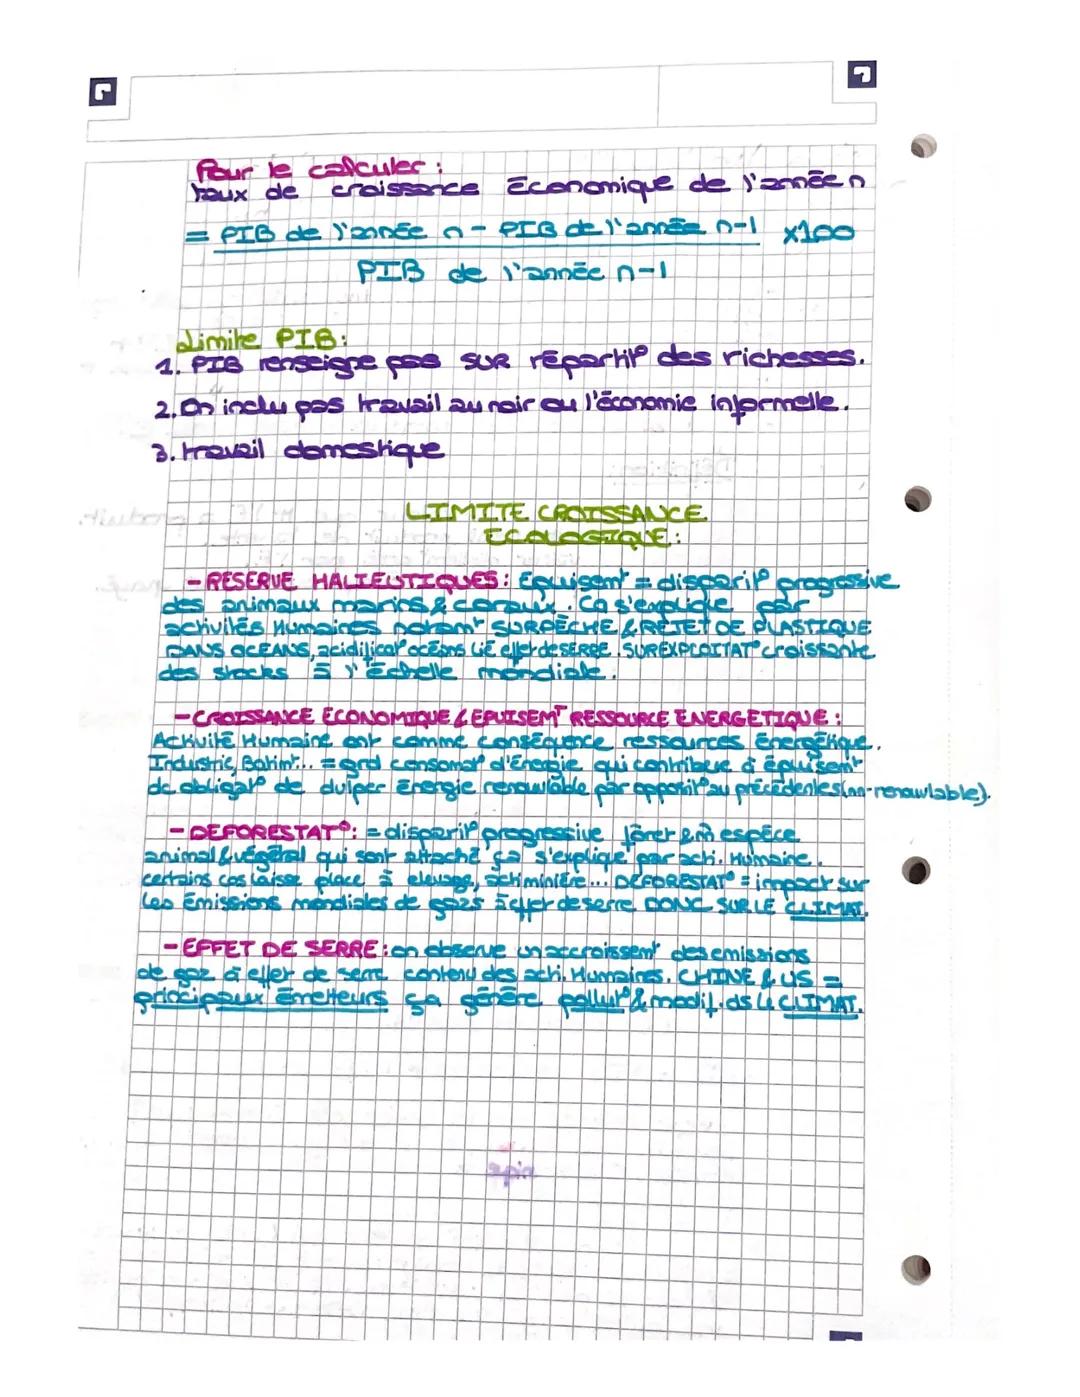 Pour le calculer :
taux de croissance économique de l'année n
= PIB de l'année n - PIB de l'année n-1 x100
PIB de l'année n-1
Limite PIB :
1. PIB renseigne pas SUR répartit° des richesses.
2. On inclu pas travail au noir ou l'économie informelle.
3. travail domestique
LIMITE CROISSANCE
ECOLOGIQUE :
- RESERVE HALIEUTIQUES : Epuisemt = disparit° progressive
des animaux marins & coraux. Ca s'explique par
activités Humaines notamt SURPÊCHE & REJET DE PLASTIQUE
DANS OCEANS, acidificat° océans lié effet de SERRE. SUREXPLOITAT° croissante
des stocks à l'échelle mondiale.
- CROISSANCE ECONOMIQUE & EPUISEMT RESSOURCE ENERGETIQUE :
Activité Humaine ont comme conséquence ressources énergétique.
Industrie, Batimt... = grd consomat° d'énergie qui contribue à épuisemt
dc obligat° de dvlper énergie renouvlable par opposit° au précédentes (non-renouvlable).
- DEFORESTAT° : = disparit° progressive fôret & espèce
animal & végétal qui sont attaché ça s'explique par acti. Humaine.
certains cas laisse place à elevage, acti minière... DEFORESTAT° = impact sur
les émissions mondiales de gazs à effet de serre DONC SUR LE CLIMAT.
- EFFET DE SERRE : on observe un accroissemt des emissions
de gaz à effet de serre contenu des acti. Humaines. CHINE & US =
principaux émetteurs ça génère pollut° & modif. ds le CLIMAT.